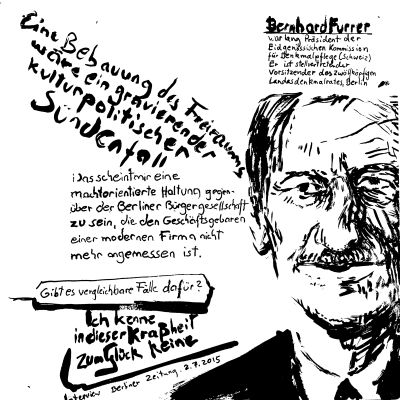 Eine Bebauung des Freiraums
wäre ein gravierender
kulturpolitischer
Sündenfall
Bernhard Furrer
war lang Präsident der
Eidgenössischen Kommission
für Denkmalpflege (Schweiz)
Er ist stellvertretender
Vorsitzender des zwölfköpfigen
Landesdenkmalrates, Berlin
Das scheint mir eine
machtorientierte Haltung gegen-
über der Berliner Bürgergesellschaft
zu sein, die den Geschäftsgebaren
einer modernen Firma nicht
mehr angemessen ist.
Gibt es vergleichbare Fälle dafür?
Ich kenne
in dieser Kraßheit
zum Glück keine
Interview Berliner Zeitung. 2.7.2015